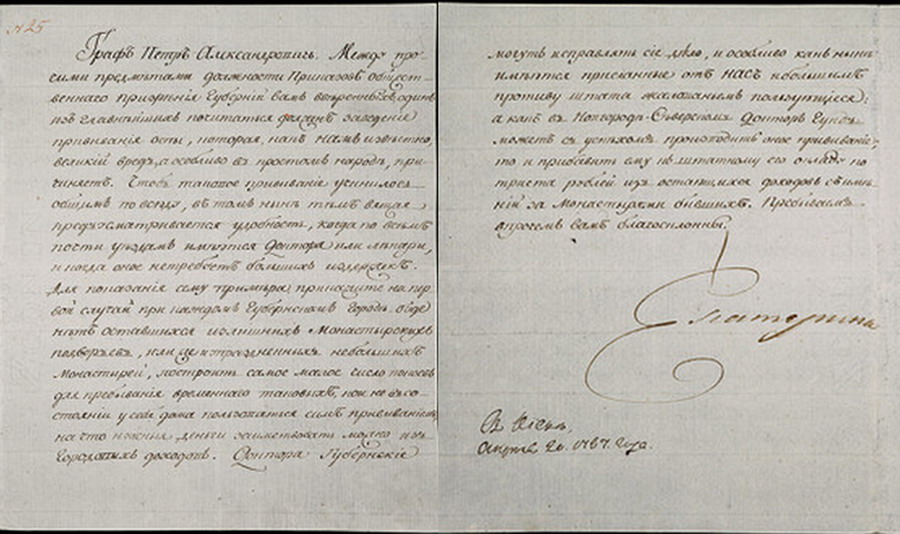 N 25
Графъ Петръ Александровичь. Между про-
чими предмѣтами должности Приказовъ общест-
веннаго призрѣнія Губерніи вамъ ввѣренныхъ, одинъ
изъ главнѣйшихъ почитаться долженъ заведеніе
прививанія оспы, которая, какъ намъ извѣстно,
великій вредъ, а особливо въ простомъ народѣ, при-
чиняетъ. Чтобъ таковое прививаніе учинилося
общимъ повсюду, въ томъ нынѣ тѣмъ вящая
предъусматривается удобность, когда по всѣмъ
почти уѣздамъ имѣются Доктора или лѣкари,
и когда оное нетребуетъ большихъ издержекъ.
Для показанія сему примѣра, прикажите на пер-
вой случай при каждомъ Губернскомъ Городѣ, буде
нѣтъ оставшихся излишнихъ Монастырскихъ
подворьевъ, или же и упраздненныхъ небольшихъ
Монастырей, построить самое малое число покоевъ
для пребыванія временнаго таковыхъ, кои не въ со-
стояніи у себя дома пользоваться симъ прививаніемъ,
на что нужныя деньги заимствовать можно изъ
Городовыхъ доходовъ. Доктора Губернскіе
могутъ исправлять сіе дѣло, и особливо какъ нынѣ
имѣются присланные отъ НАСЪ и большимъ
противу штата жалованьемъ пользующіеся:
а какъ въ Новгородѣ-Сѣверскомъ Докторъ Гунъ
можетъ съ успѣхомъ производить оное прививаніе,
то и прибавить ему къ штатному его окладу по
триста рублей изъ остающихся доходовъ съ имѣ-
ній за Монастырями бывшихъ. Пребываемъ
впрочемъ вамъ благосклонны.
Екатерина
Въ Кіевѣ,
Апрѣля 20. 1787. года.